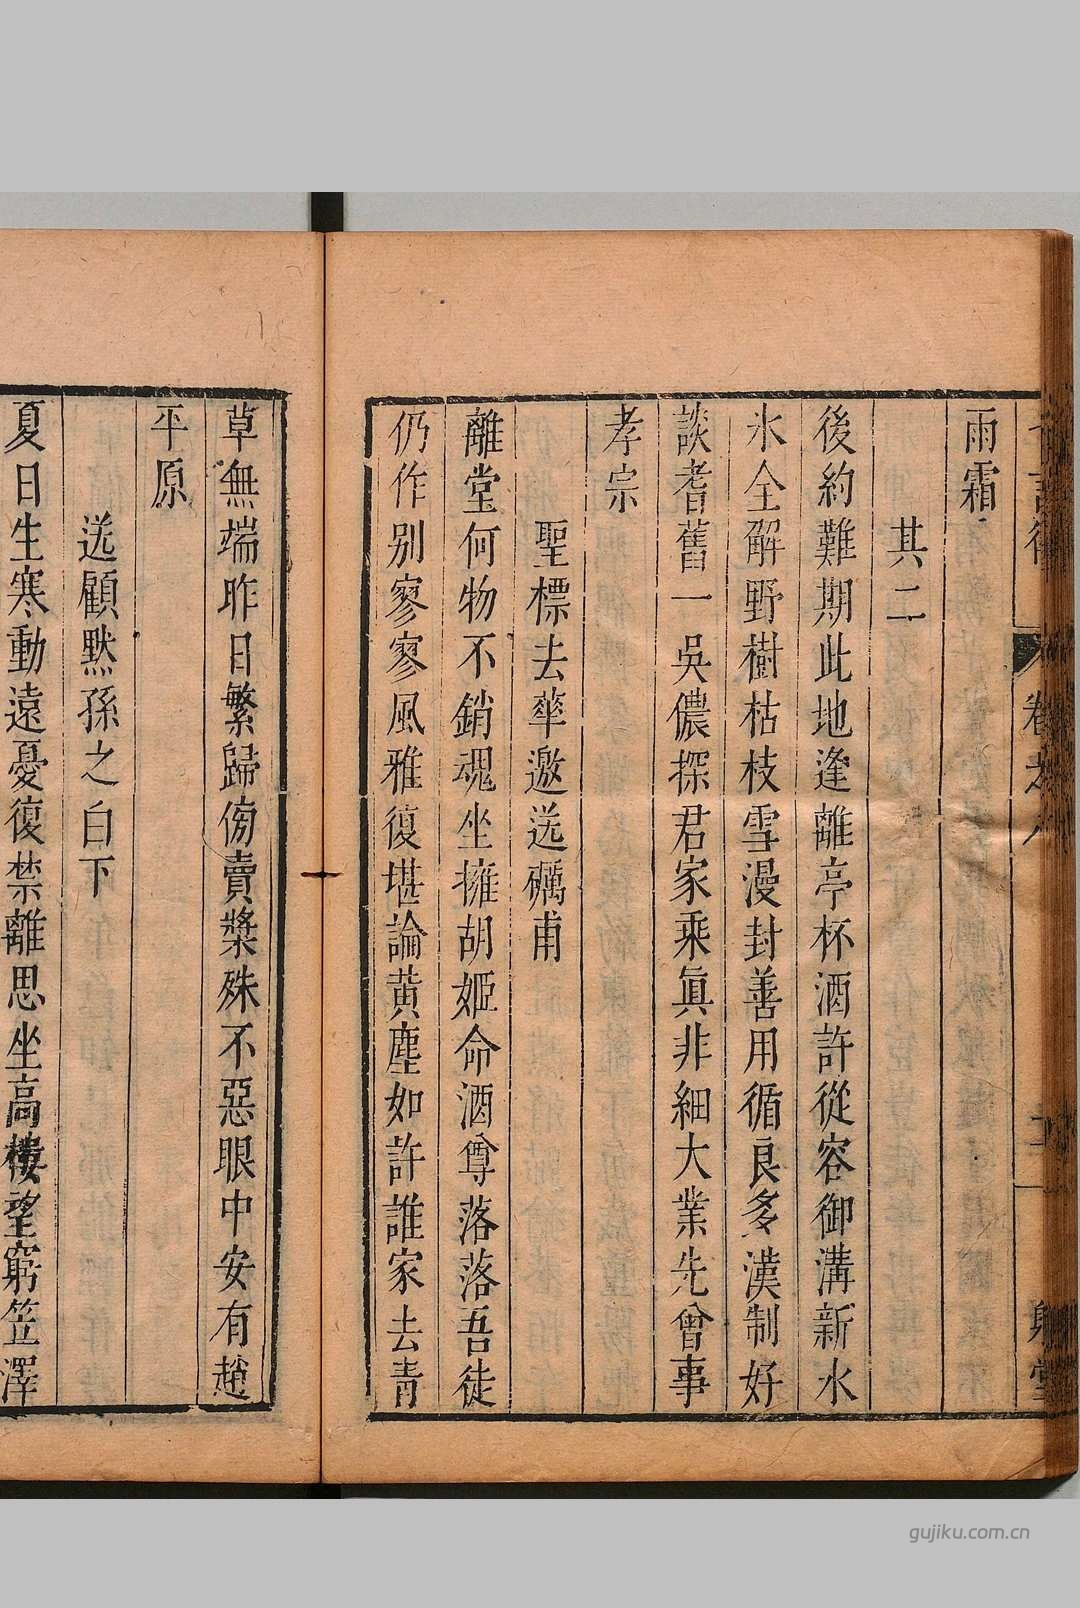 雨霜
其二
後約難期此地逢離亭杯酒許從容御溝新水
氷全解野樹枯枝雪漫封善用循良多漢制好
談耆舊一吳儂探君家乘眞非細大業先曾事
孝宗
聖標去華邀送礪甫
離堂何物不銷魂坐擁胡姬命酒尊落落吾徒
仍作别寥寥風雅復堪論黄塵如許誰家去青
草無端昨日繁歸傍賣漿殊不惡眼中安有趙
平原
送顧黙孫之白下
夏日生寒動遠憂復禁離思坐高樓望窮笠澤
gujiku.com.cn